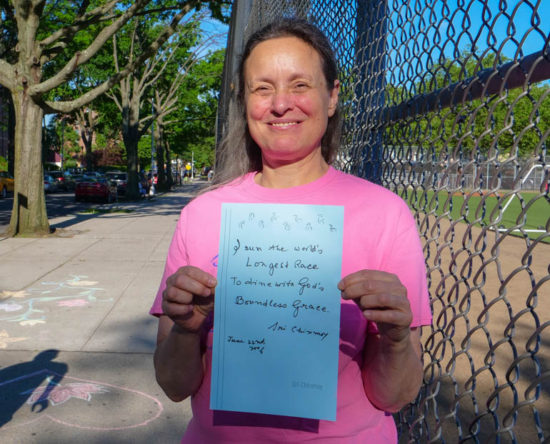 I run the world's
Longest Race
To dine with God's
Boundless Grace.
Sri Chinmoy
June 22nd
Sri Chinmoy